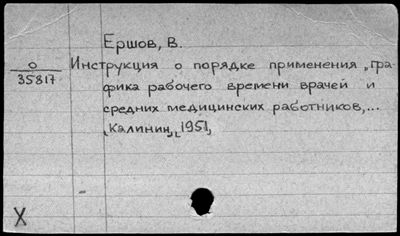 Ершов, В.
0
35817
Инструкция о порядке применения „гра-
фика рабочего времени врачей и
средних медицинских работников,...
[Калинин], [1951],
X